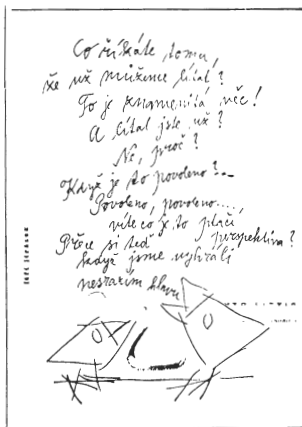 Co říkáte tomu,
že už můžeme lítat?
To je znamenitá věc!
A lítal jste už?
Ne, proč?
Když je to povoleno?...
Povoleno, povoleno....
víte co je to ptačí
perspektiva?
Přece si teď
když jsme vyhráli
nesrazím hlavu